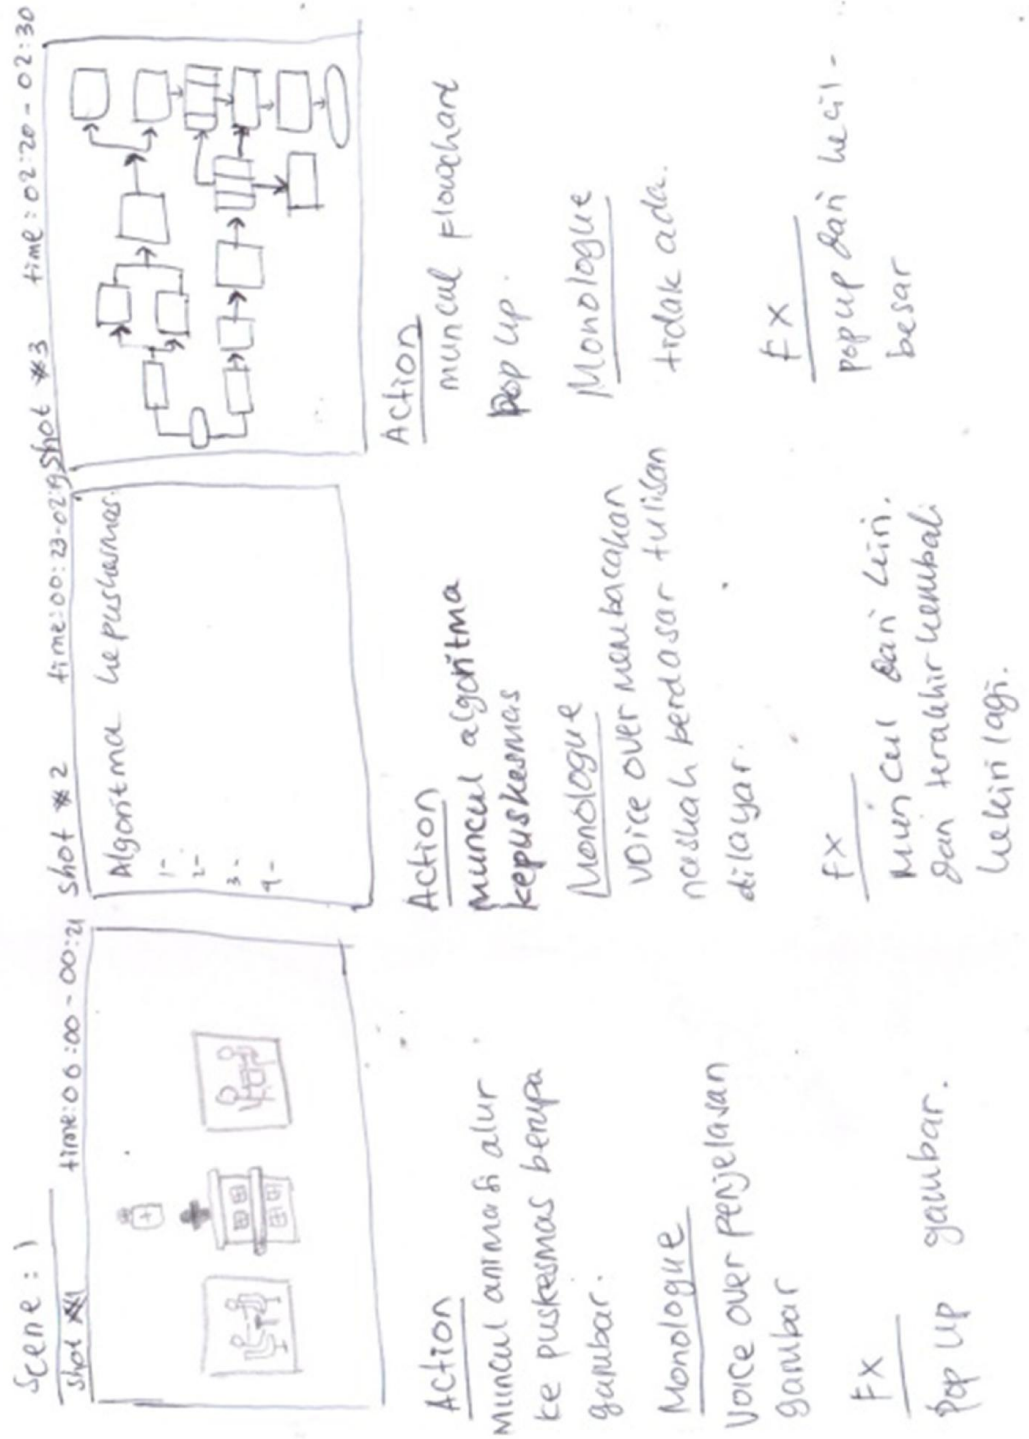 Scene : 1
Shot #1
time:00:00-00:21
Action
Muncul animasi alur
ke puskesmas berupa
gambar.
Monologue
Voice over penjelasan
gambar
FX
Pop Up gambar.
Shot #2
time:00:23-02:19
Algoritma ke puskesmas.
1-
2-
3-
4-
Action
muncul algoritma
kepuskesmas
Monologue
Voice over membacakan
naskah berdasar tulisan
dilayar.
FX
Muncul dari kiri.
dan terakhir kembali
kekiri lagi.
Shot #3
time:02:20-02:30
Action
muncul flowchart
pop up.
Monologue
tidak ada.
FX
pop up dari kecil-
besar